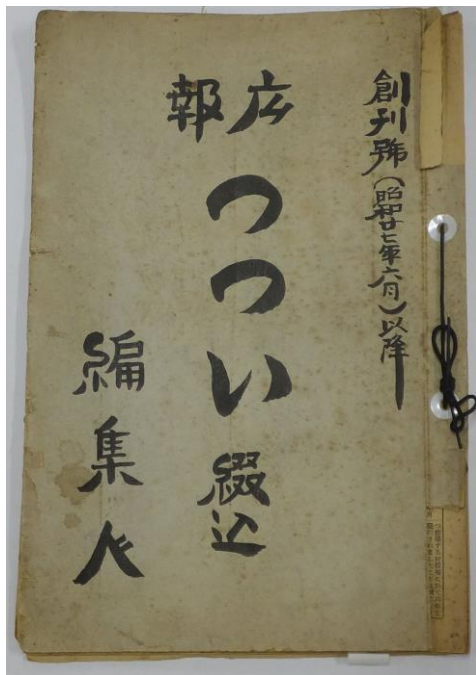 創刊號(昭和廿七年六月)以降
広報
つつい綴込
編集人